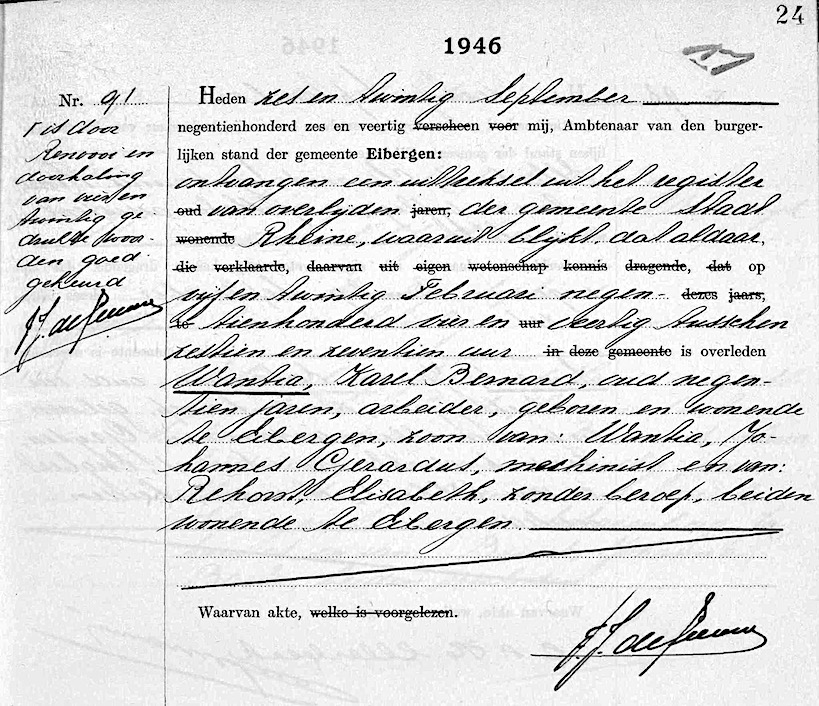 24
1946
Nr. 91
Heden zes en twintig September
negentienhonderd zes en veertig verscheen voor mij, Ambtenaar van den burger-
lijken stand der gemeente Eibergen:
ontvangen een uittreksel uit het register
oud van overlijden jaren, der gemeente Stadt
wonende Rheine, waaruit blijkt, dat aldaar,
die verklaarde, daarvan uit eigen wetenschap kennis dragende, dat op
vijf en twintig Februari negen- dezes jaars,
te tienhonderd vier en uur veertig tusschen
zestien en zeventien uur in deze gemeente is overleden
Wantia, Karel Bernard, oud negen-
tien jaren, arbeider, geboren en wonende
te Eibergen, zoon van: Wantia, Jo-
hannes Gerardus, machinist en van:
Rehorst, Elisabeth, zonder beroep, beiden
wonende te Eibergen.
Waarvan akte, welke is voorgelezen.
J.J. de
is door
Renvooi en
doorhaling
van vier en
twintig ge-
drukte woor-
den goed-
gekeurd
J.J. de